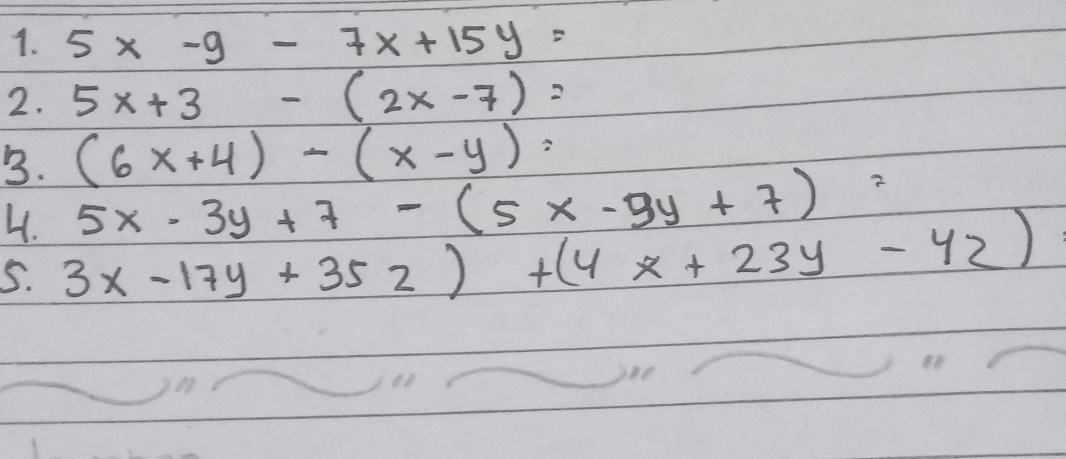 1. 5x - 9 - 7x + 15y =
2. 5x + 3 - (2x - 7) =
3. (6x + 4) - (x - y) =
4. 5x - 3y + 7 - (5x - 9y + 7) =
5. 3x - 17y + 35z) + (4x + 23y - 4z) =